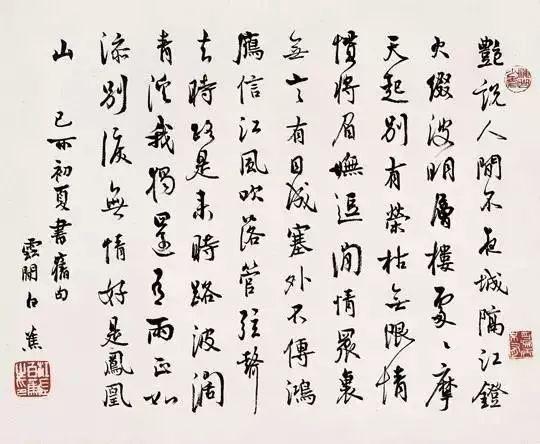 艷說人間不夜城隔江鐙
火綴波明層樓處〻摩
天起別有榮枯無限情
慣將眉嫵逗閒情眾裏
無言有目成塞外不傳鴻
鴈信江風吹落管弦聲
去時路是來時路波濶
青溪我獨還有雨正如
添別淚無情好是鳳凰
山 己亥初夏書舊句
雲間白蕉